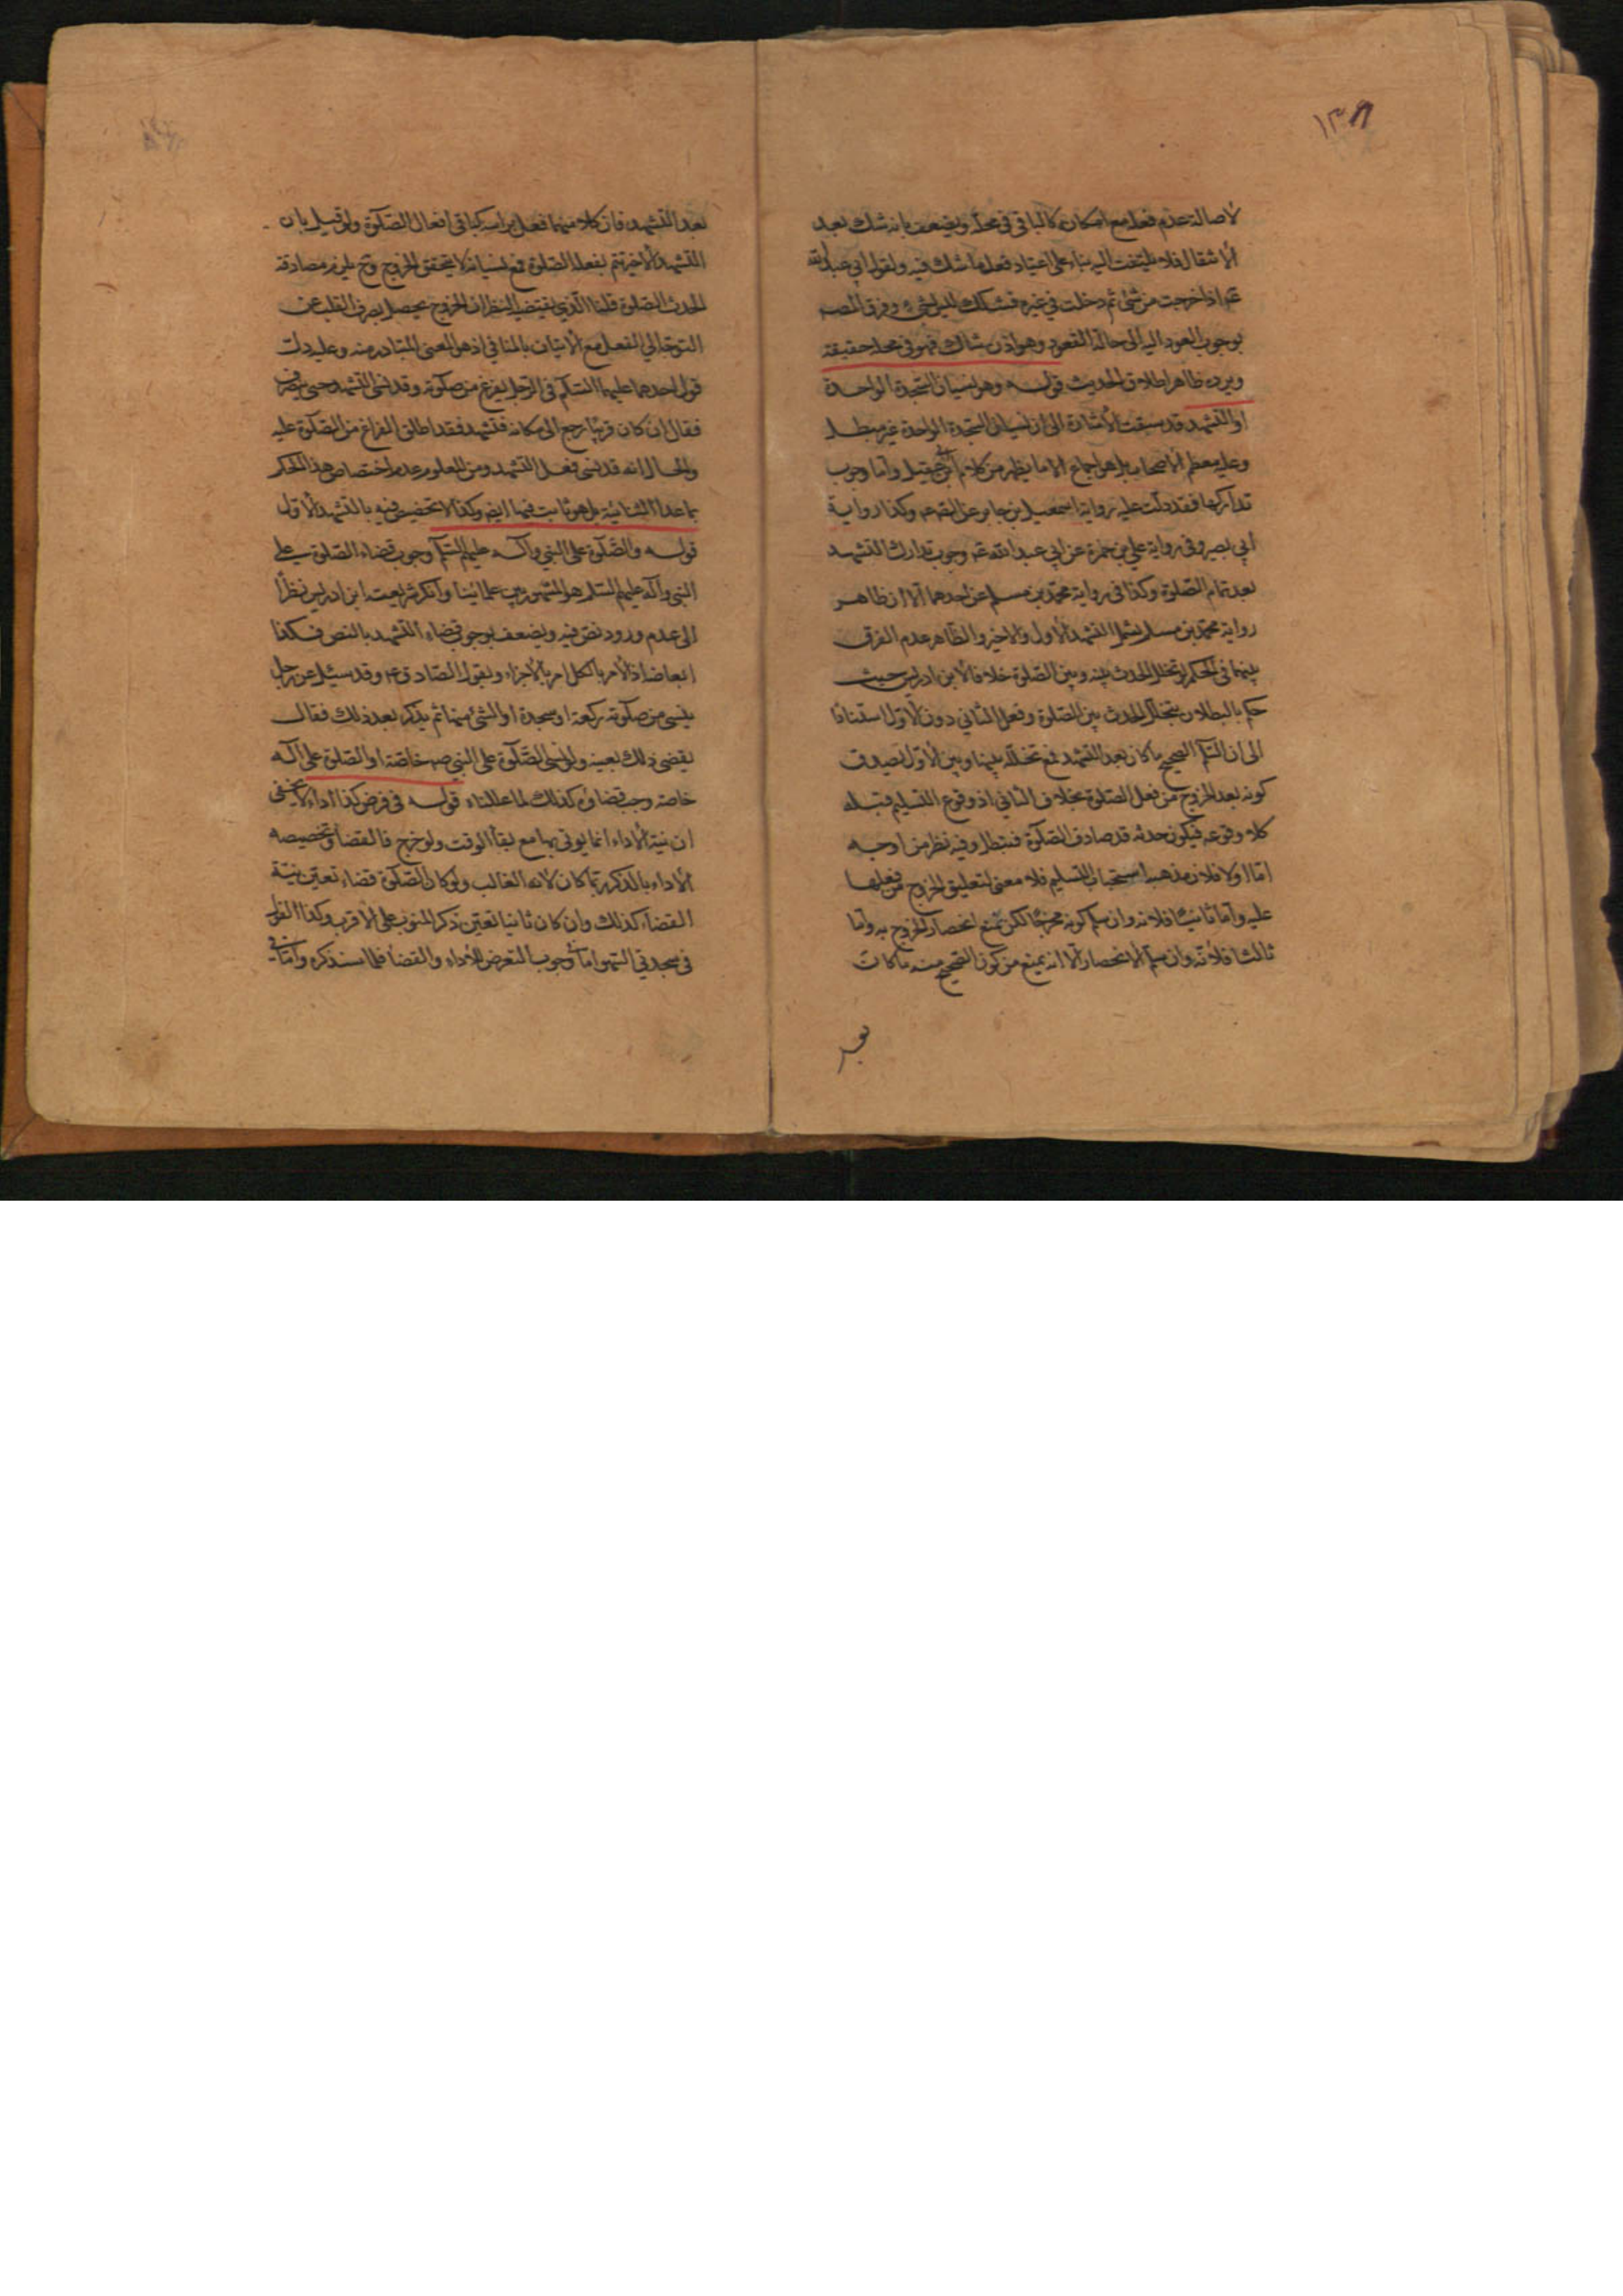 ١٣٨
لاصالة عدم فعله مع امكانه كالباقى فى محله ويضعف بانه شك بعد
الانتقال فلا يلتفت اليه بناء على اعتياد فعل ما شك فيه ولقول ابى عبد الله
عم اذا خرجت من شئ ثم دخلت فى غيره فشكك ليس بشئ وفرق المصه
بوجوب العود اليه الى حالة القعود وهو اذن شاك فهو فى محله حقيقة
ويرده ظاهر اطلاق الحديث قوله وهو نسيان السجدة الواحدة
او التشهد قد سبقت الاشارة الى ان نسيان السجدة الواحدة غير مبطل
وعليه معظم الاصحاب بل هو اجماع الا ما يظهر من كلام ابن ابى عقيل واما وجوب
تداركها فقد دلت عليه رواية اسمعيل بن جابر عن الصه عم وكذا رواية
ابى بصير وفى رواية على بن حمزة عن ابى عبد الله عم وجوب تدارك التشهد
بعد تمام الصلوة وكذا فى رواية محمد بن مسلم عن احدهما الا ان ظاهر
رواية محمد بن مسلم يشمل التشهد الاول والاخير والظاهر عدم الفرق
بينهما فى الحكم لو تخلل الحدث بينه وبين الصلوة خلافا لابن ادريس حيث
حكم بالبطلان بتخلل الحدث بين الصلوة وفعل الثانى دون الاول استنادا
الى ان التسلم الصحيح ما كان بعد التشهد فمع تخلله بينهما وبين الاول يصدق
كونه بعد الخروج من فعل الصلوة بخلاف الثانى اذ وقوع التسليم قبله
كلا وقوعه فيكون حدثه قد صادف الصلوة فتبطل وفيه نظر من اوجه
اما اولا فلان مذهبه استحباب التسليم فلا معنى لتعليق الخروج من فعلها
عليه واما ثانيا فلانه وان سلم كونه مخرجا لكن يمنع انحصار الخروج به واما
ثالثا فلانه وان سلم الانحصار الا انه يمنع من كون الصحيح منه ما كان
بعد
بعد التشهد فان كلا منهما فعل براسه كباقى افعال الصلوة ولو قيل بان
التشهد الاخير تتم بفعله الصلوة فمع نسيانه لا يتحقق الخروج وح يلزم مصادفة
الحدث الصلوة قلنا الذى يقتضيه النظر ان الخروج يحصل بصرف القلب عن
التوجه الى الفعل مع الاتيان بالمنافى اذ هو المعنى المتبادر منه وعليه دلت
قول احدهما عليهما السلم فى الرجل يفرغ من صلوته وقد نسى التشهد حتى ينصرف
فقال ان كان قريبا رجع الى مكانه فتشهد فقد اطلق الفراغ من الصلوة عليه
والحال انه قد نسى فعل التشهد ومن المعلوم عدم اختصاص هذا الحكم
بما عدا الثنائية بل هو ثابت فيها ايضه وكذا لا تخصيص فيه بالتشهد الاول
قوله والصلوة على النبى وآله عليهم السلم وجوب قضاء الصلوة على
النبى وآله عليهم السلم هو المشهور بين علمائنا وانكر شرعيته ابن ادريس نظرا
الى عدم ورود نص فيه ويضعف بوجوب قضاء التشهد بالنص فكذا
ابعاضه اذ الامر بالكل امر بالاجزاء وبقول الصادق عم وقد سئل عن رجل
ينسى من صلوته ركعة او سجدة او الشئ منها ثم يذكر بعد ذلك فقال
يقضى ذلك بعينه ولو نسى الصلوة على النبى صه خاصة او الصلوة على آله
خاصة وجب قضاؤه كذلك لما عللناه قوله فى فرض كذا اداء لا يخفى
ان نية الاداء انما يوتى بها مع بقاء الوقت ولو خرج فالقضاء وتخصيصه
الاداء بالذكر ربما كان لانه الغالب ولو كان الصلوة قضاء تعين نية
القضاء كذلك وان كان نائبا تعين ذكر المنوب على الاقرب وكذا القول
فى سجدتى السهو اما وجوب التعرض للاداء والقضاء فلما سنذكره واما فى